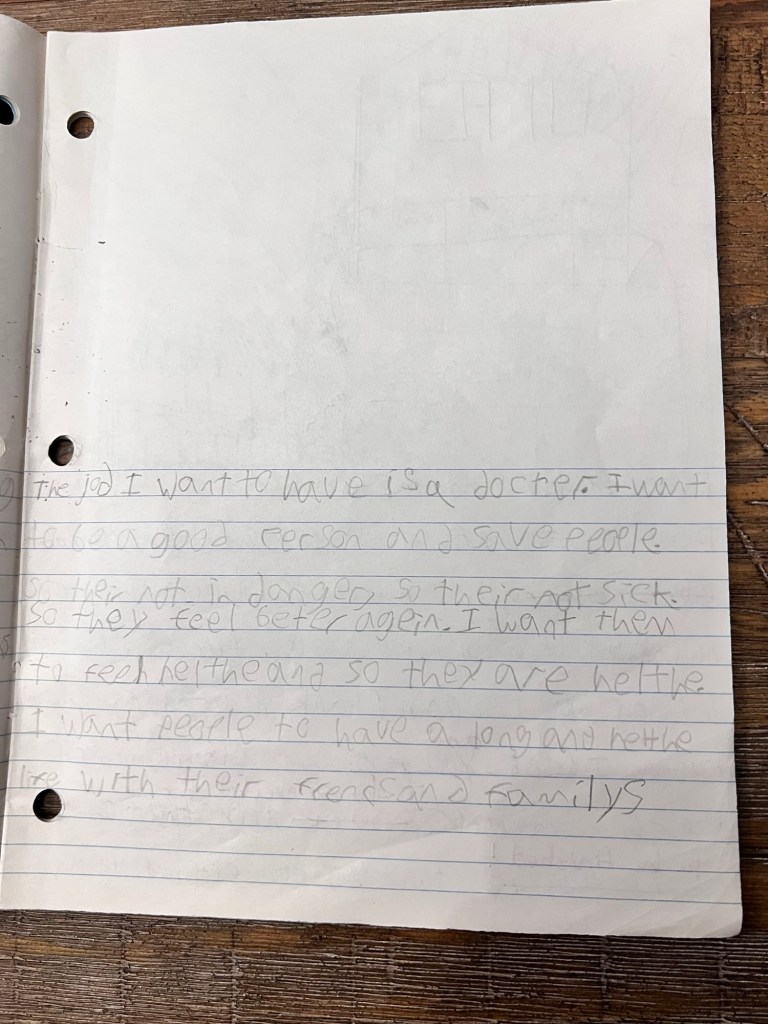 The jod I want to have is a docter. I want
to be a good person and save people.
so their not in danger, so their not sick.
so they feel beter agein. I want them
to feel helthe and so they are helthe.
I want people to have a long and helthe
life with their frends and familys